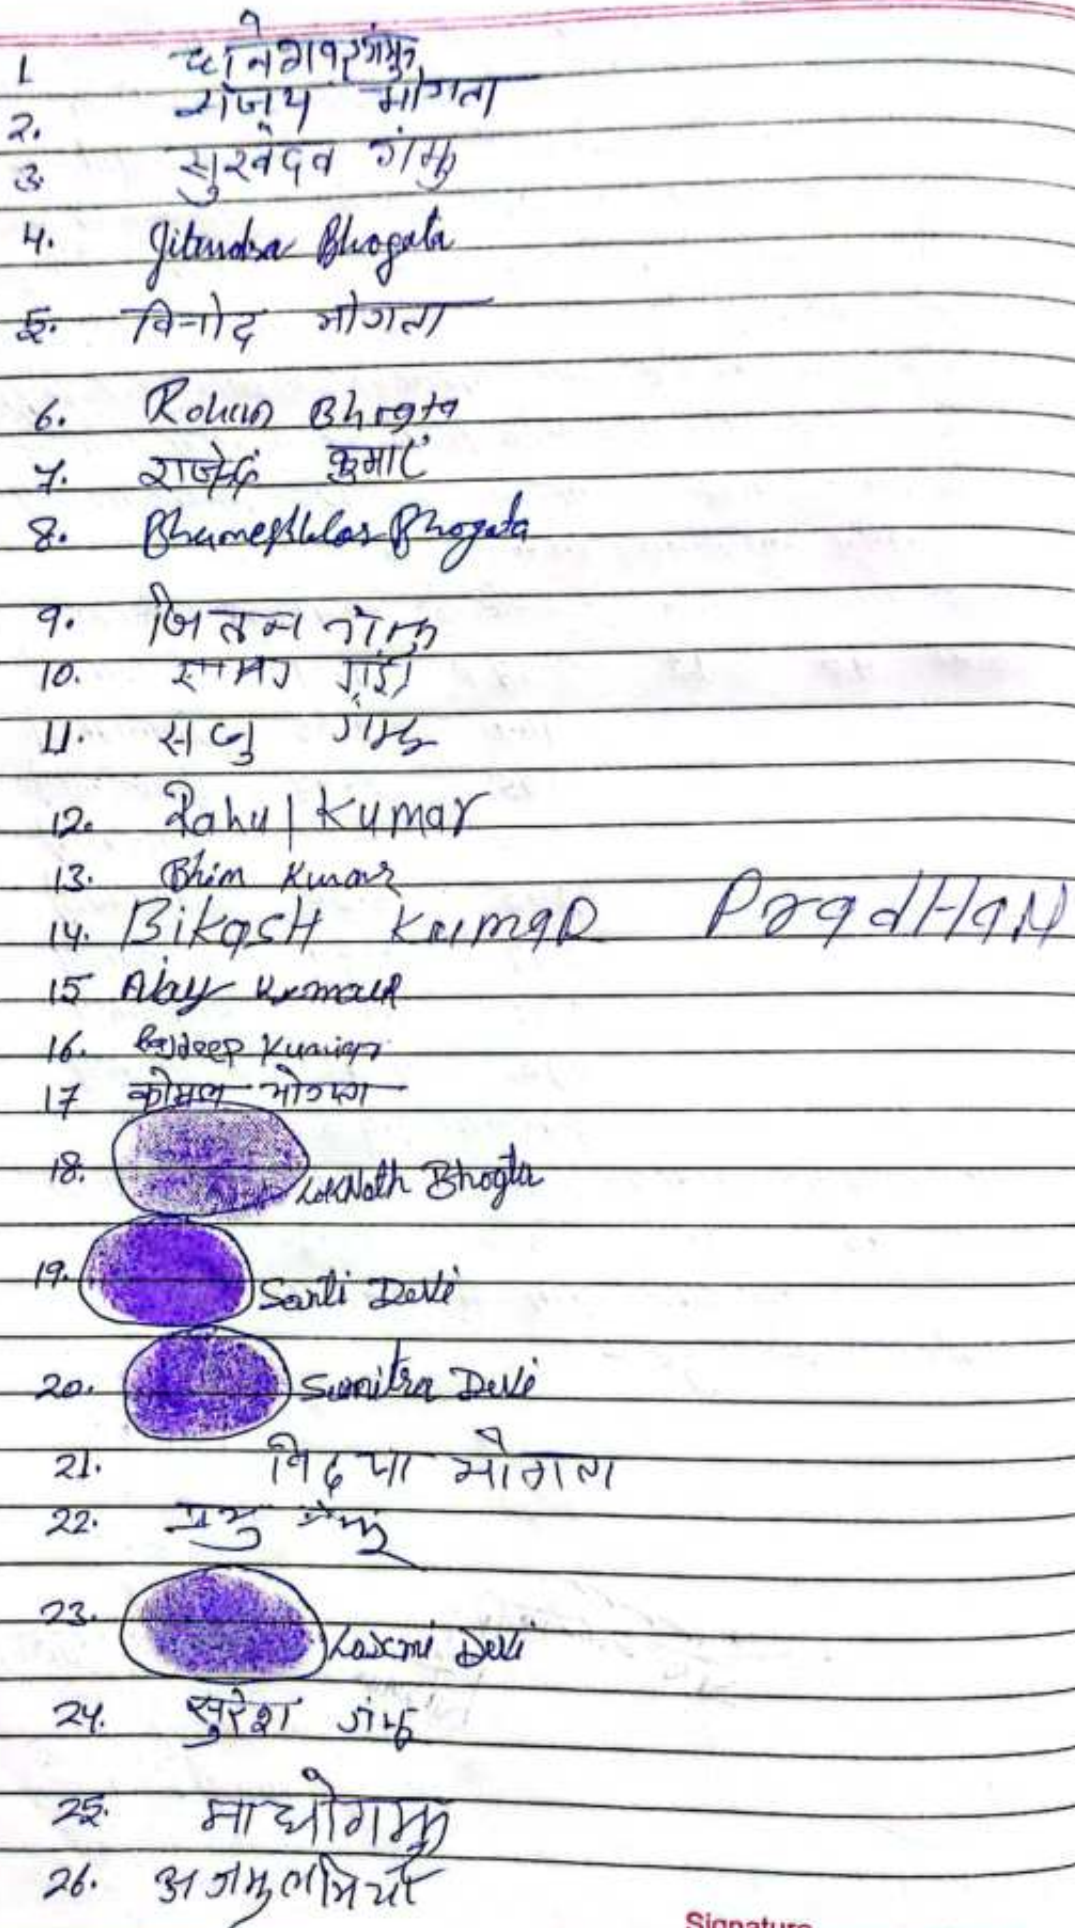 1
2. संजय भोगता
3. सुखदेव गंझु
4. Jitendra Bhogata
5. विनोद भोगता
6. Rohan Bhogta
7. राजेंद्र कुमार
8. Bhuneshwar Bhogata
9.
10.
11. राजु गंझु
12. Rahul Kumar
13. Bhim Kumar
14. BikasH KumaR PradHaN
15 Ajay Kumar
16. Rajdeep Kumar
17 कोमल भोगता
18. LokNath Bhogta
19. Santi Devi
20. Sumitra Devi
21. विदया भोगता
22. प्रभु
23. Laxmi Devi
24. सुरेश गंझु
25.
26.
Signature